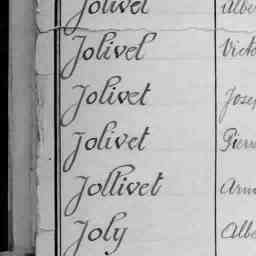 Jolivet
Jolivel Vict
Jolivet Jose
Jolivet Pierr
Jollivet Arm
Joly Albe